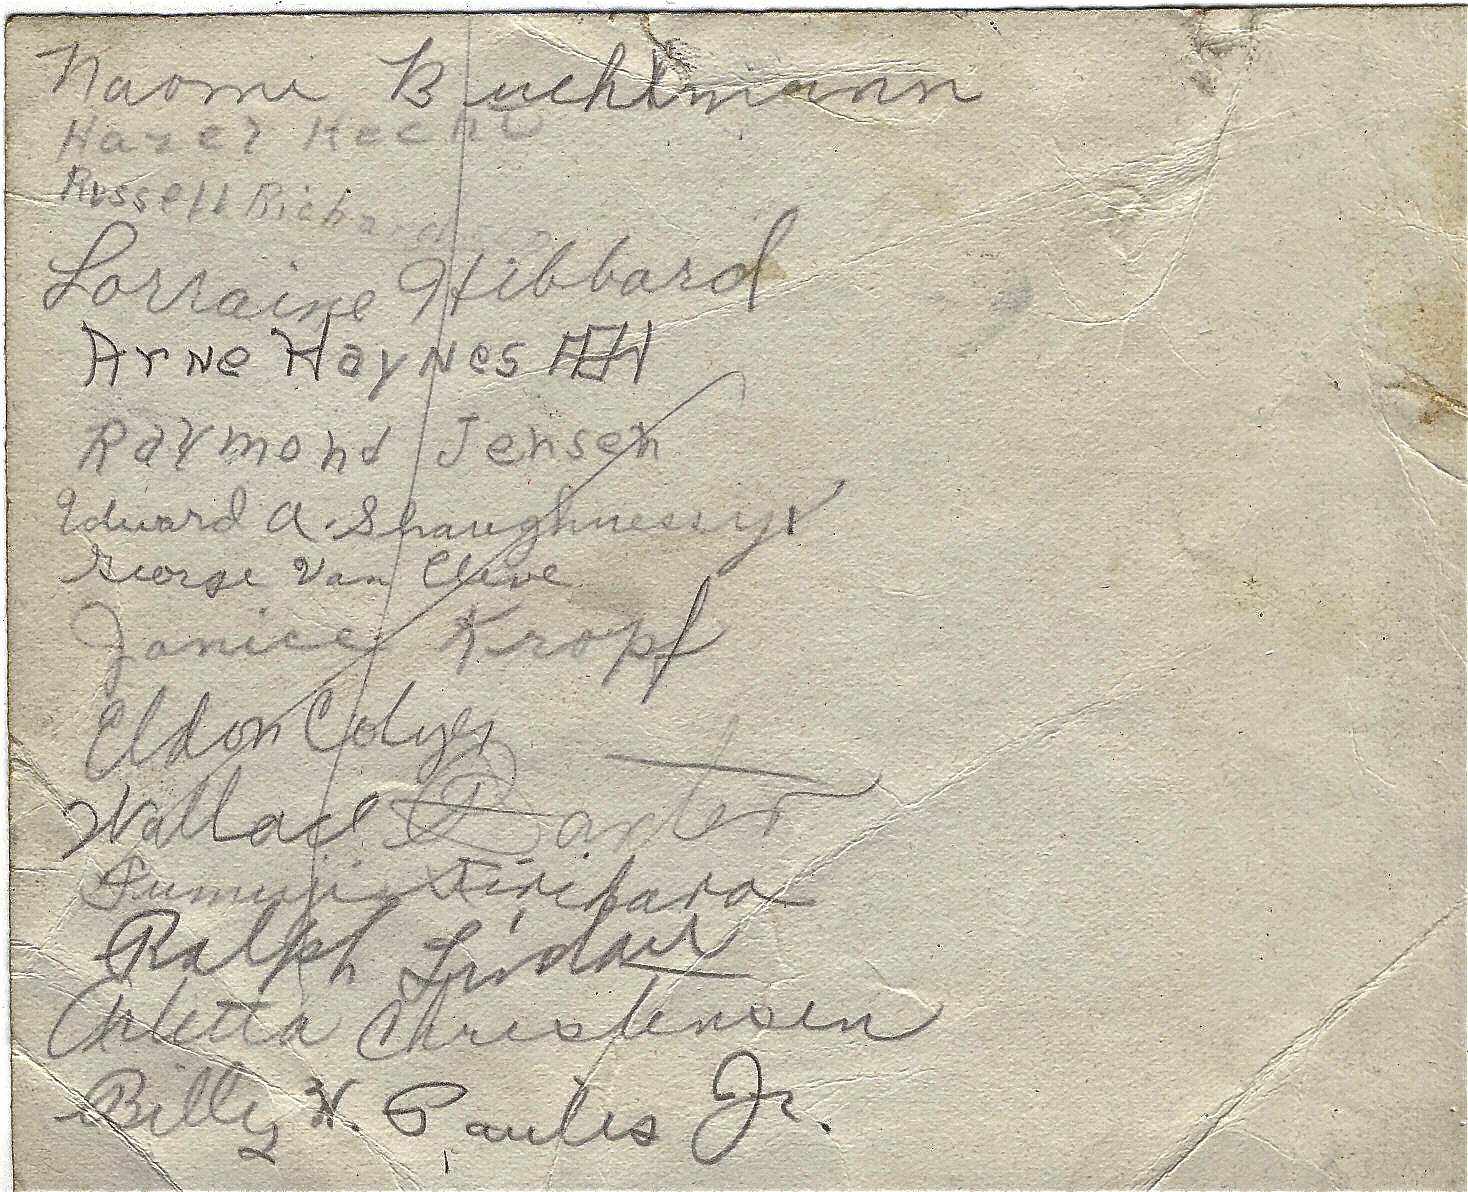 Naomi Buchlmann
Hazel Kecht
Russell Richardson
Lorraine Hibbard
Arne Haynes AH
Raymond Jensen
Edward A. Shaughnessy
George Van Cleve
Janice Kropf
Eldon Colyer
Wallace Baxter
Fumiji Kirihara
Ralph
Arletta Christensen
Billy W. Paules Jr.